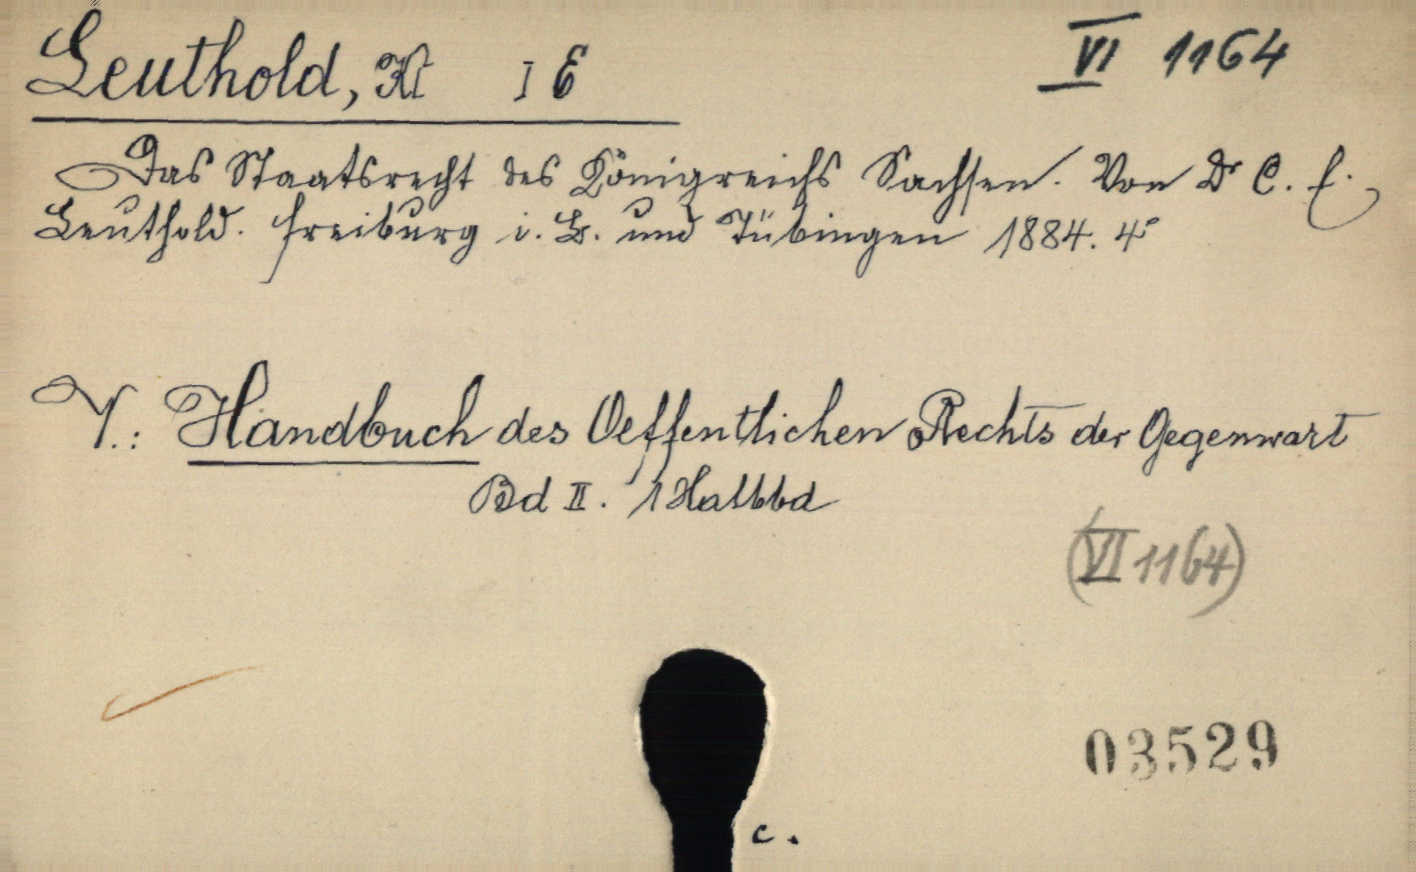 Leuthold, Kl I E
VI 1164
Das Staatsrecht des Königreichs Sachsen. Von Dr C. E.
Leuthold. Freiburg i. B. und Tübingen 1884. 4°
V.: Handbuch des Oeffentlichen Rechts der Gegenwart
Bd II. 1 Halbbd
(VI 1164)
03529
c.